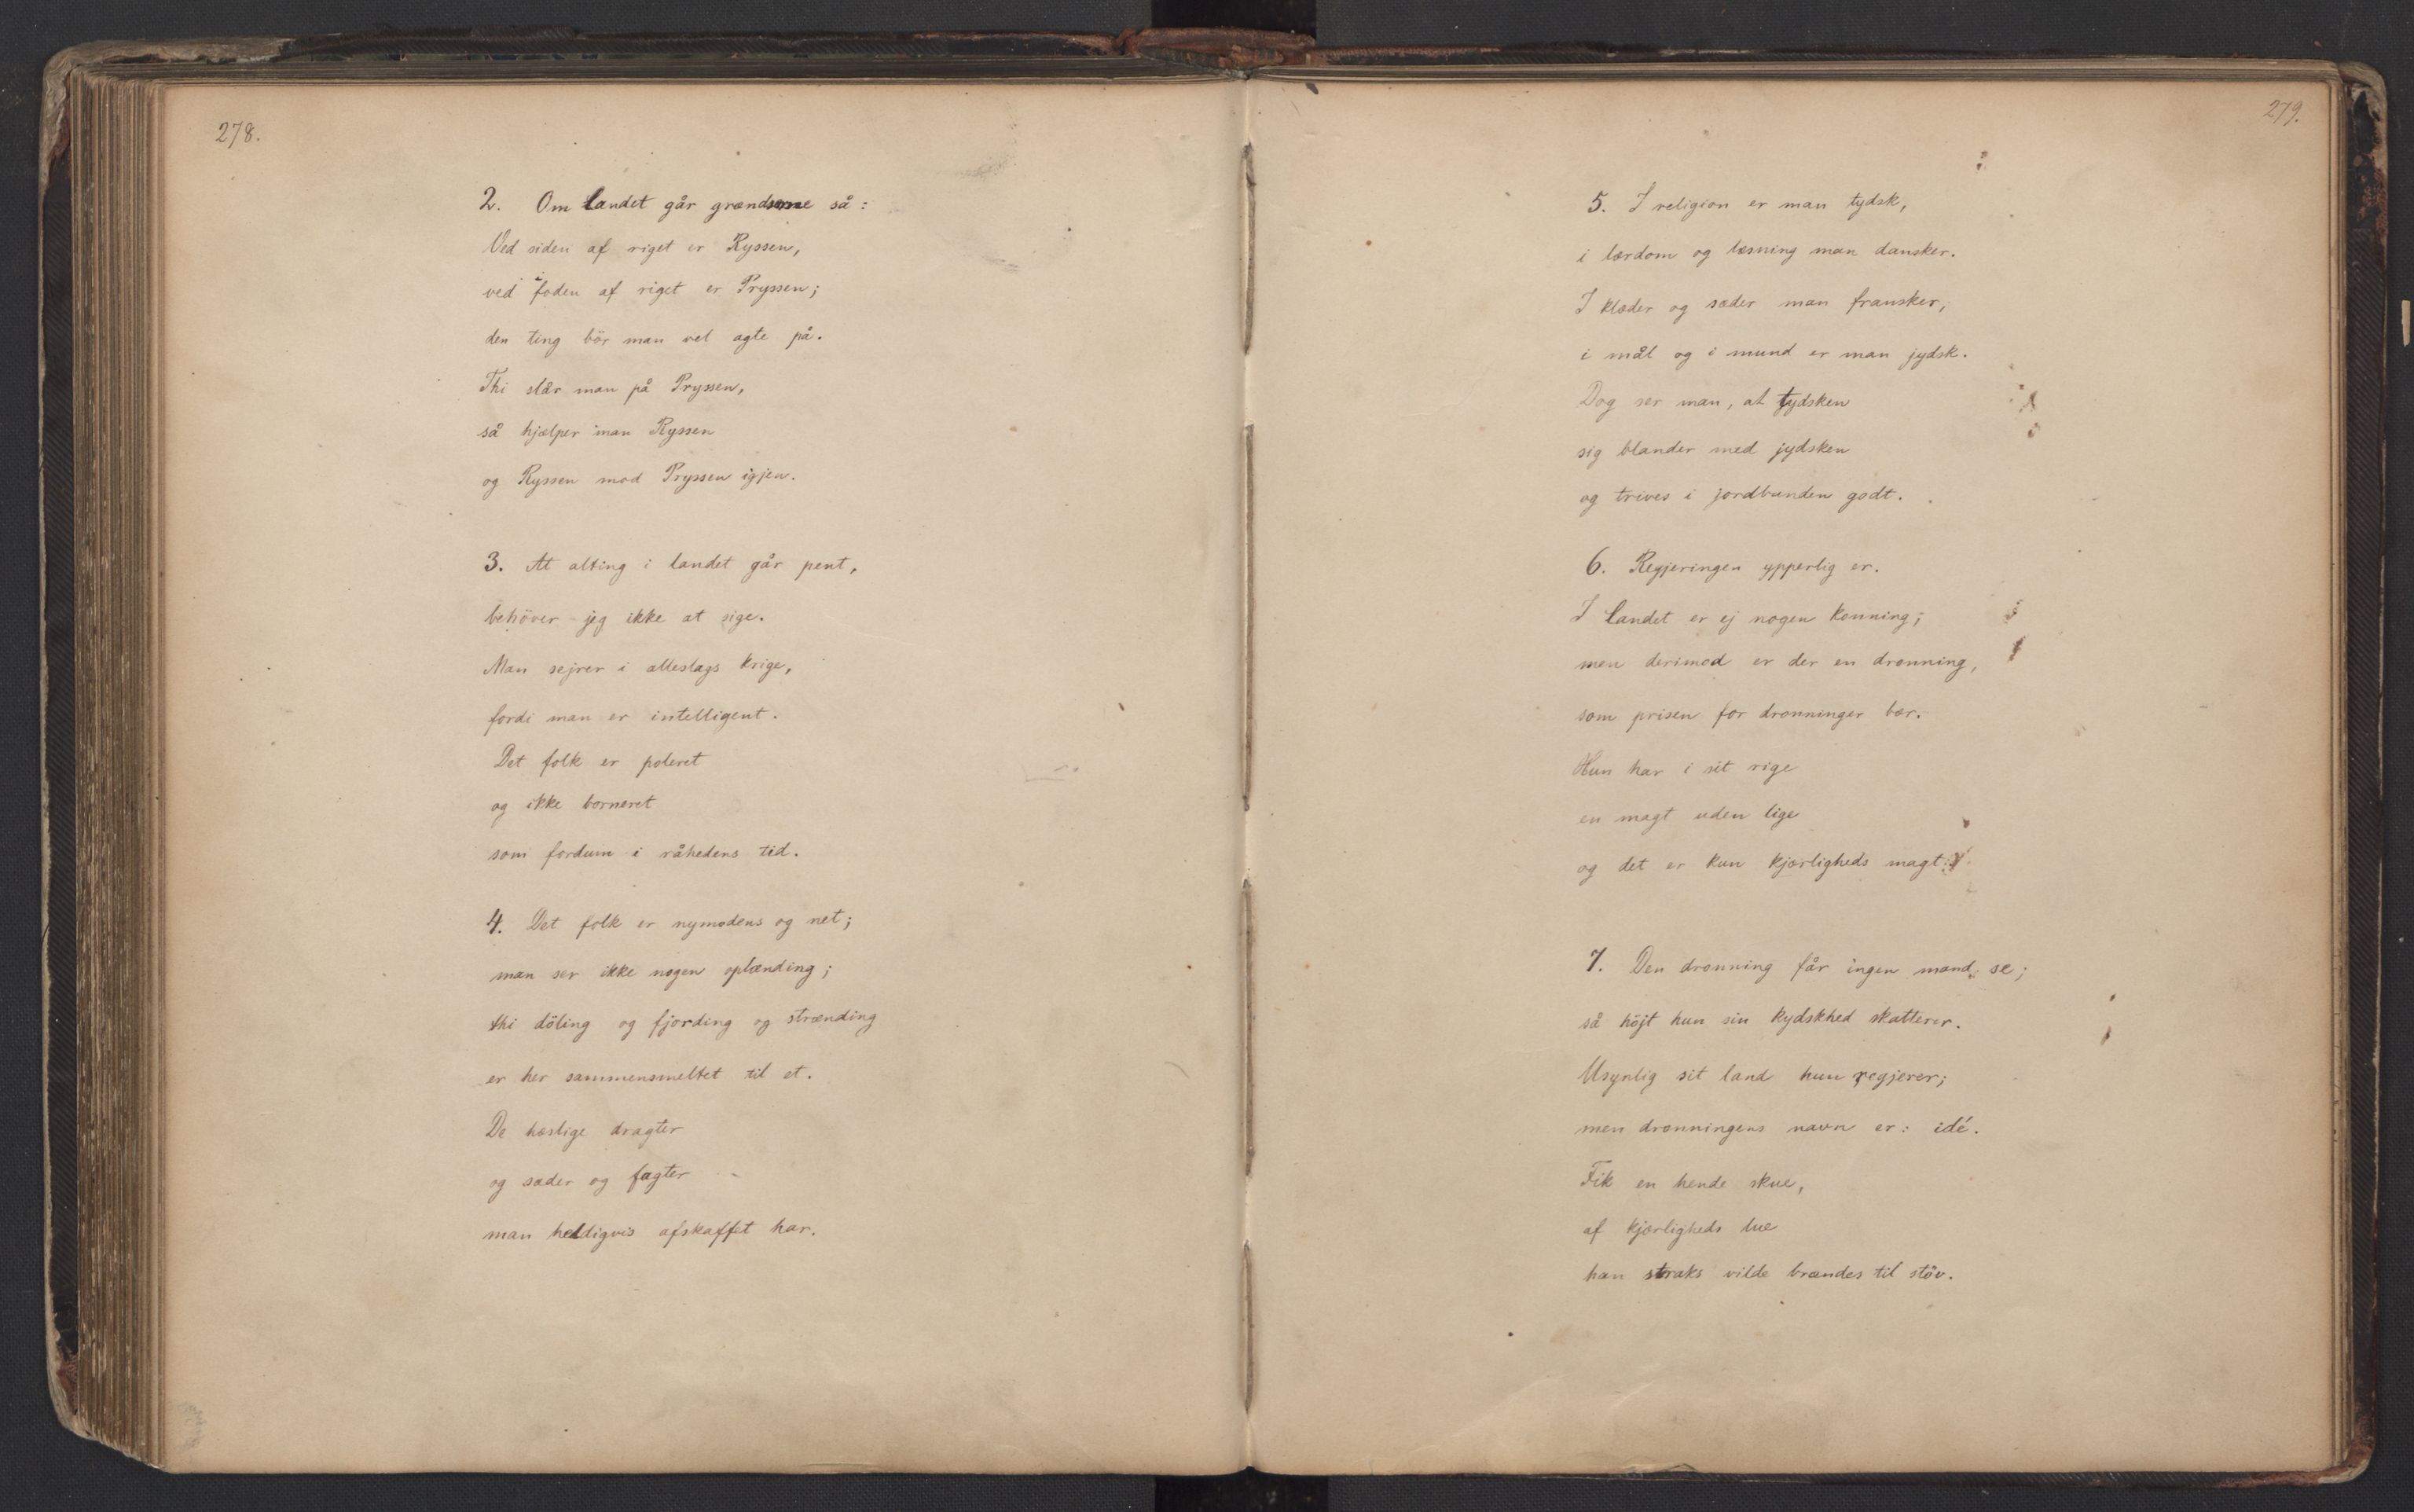 278.
2. Om landet går grændserne så:
Ved siden af riget er Ryssen,
ved foden af riget er Pryssen;
den ting bör man vel agte på.
Thi slår man på Pryssen,
så hjælper man Ryssen
og Ryssen mod Pryssen igjen.
3. At alting i landet går pent,
behöver jeg ikke at sige.
Man sejrer i alleslags krige,
fordi man er intelligent.
Det folk er poleret
og ikke borneret
som fordum i råhedens tid.
4. Det folk er nymodens og net;
man ser ikke nogen oplænding;
thi döling og fjording og strænding
er her sammensmeltet til et.
De hæslige dragter
og sæder og fagter
man heldigvis afskaffet har.
279.
5. I religion er man tydsk,
i lærdom og læsning man dansker.
I klæder og sæder man fransker,
i mål og i mund er man jydsk.
Dog ser man, at tydsken
sig blander med jydsken
og trives i jordbunden godt.
6. Regjeringen ypperlig er.
I landet er ej nogen konning;
men derimod er der en dronning,
som prisen for dronninger bær.
Hun har i sit rige
en magt uden lige
og det er kun kjærligheds magt.
7. Den dronning får ingen mand se;
så höjt hun sin kydskhed skatterer.
Usynlig sit land hun regjerer;
men dronningens navn er: idé.
Fik en hende skue,
af kjærligheds lue
han straks vilde brændes til stöv.